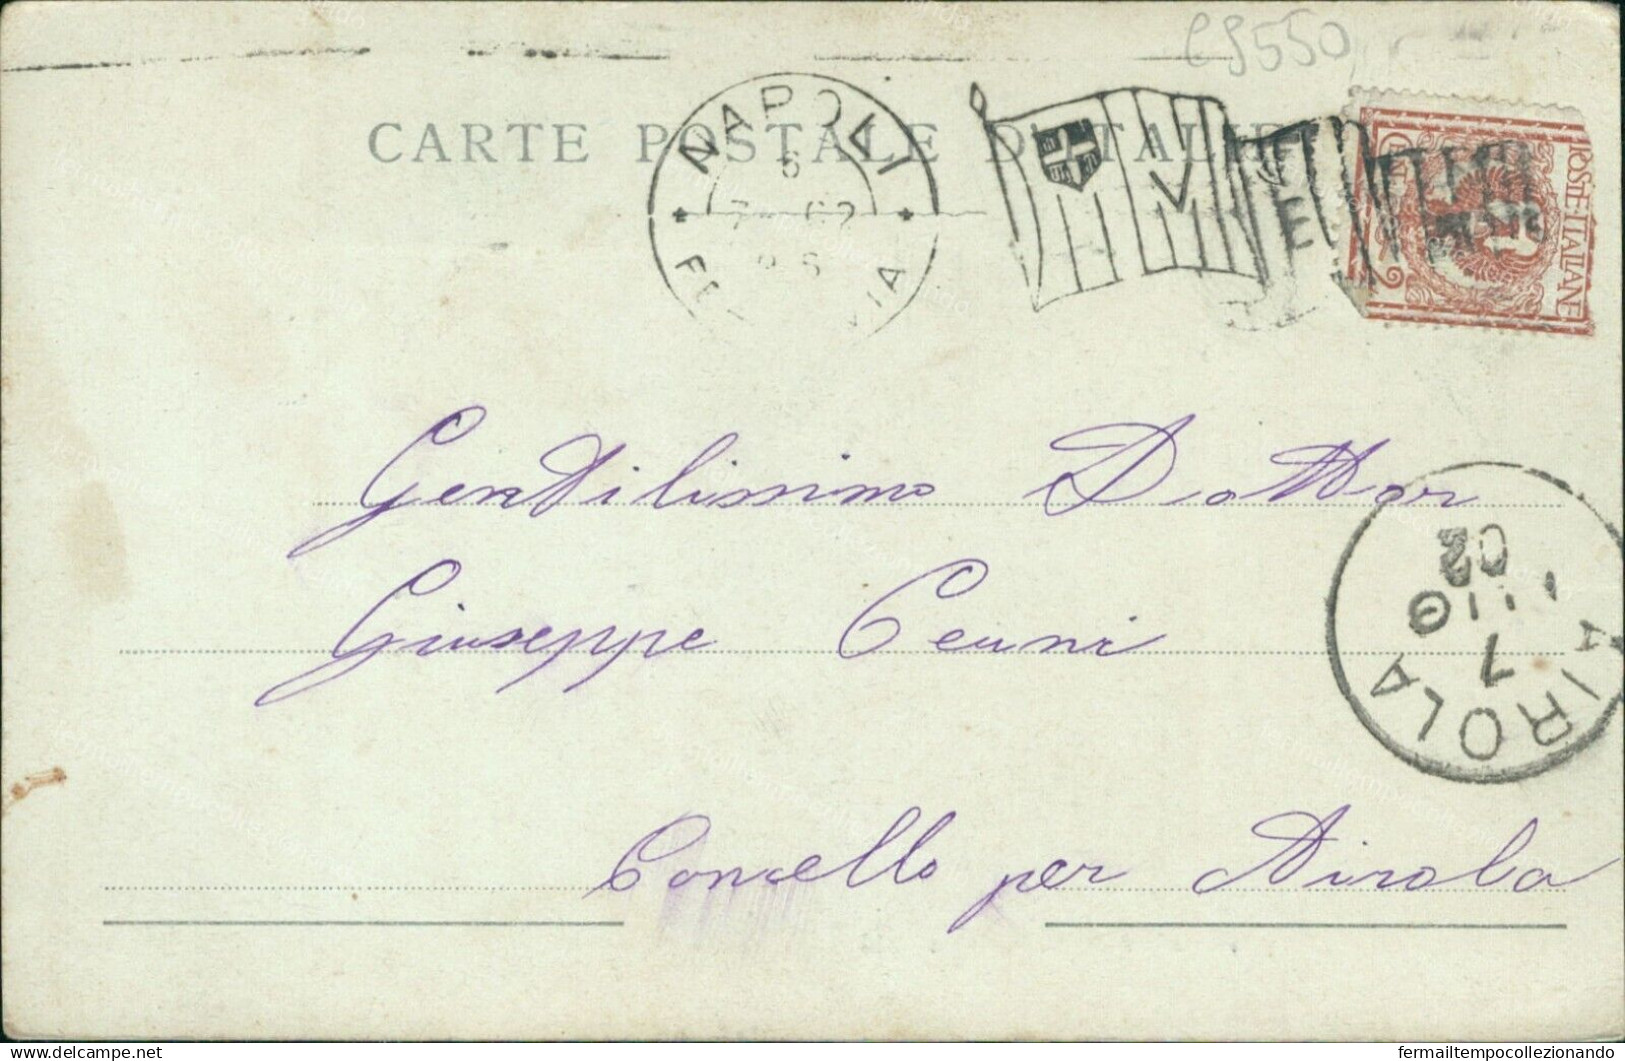 CS550
CARTE POSTALE D'ITALIE
NAPOLI
6
7 - 02
FERROVIA
V E
POSTE-ITALIANE
CENT. 2
Gentilissimo Dottor
Giuseppe Cenni
per Airola
AIROLA
7
LUG
02
delcampe.net
fermailtempocollezionando